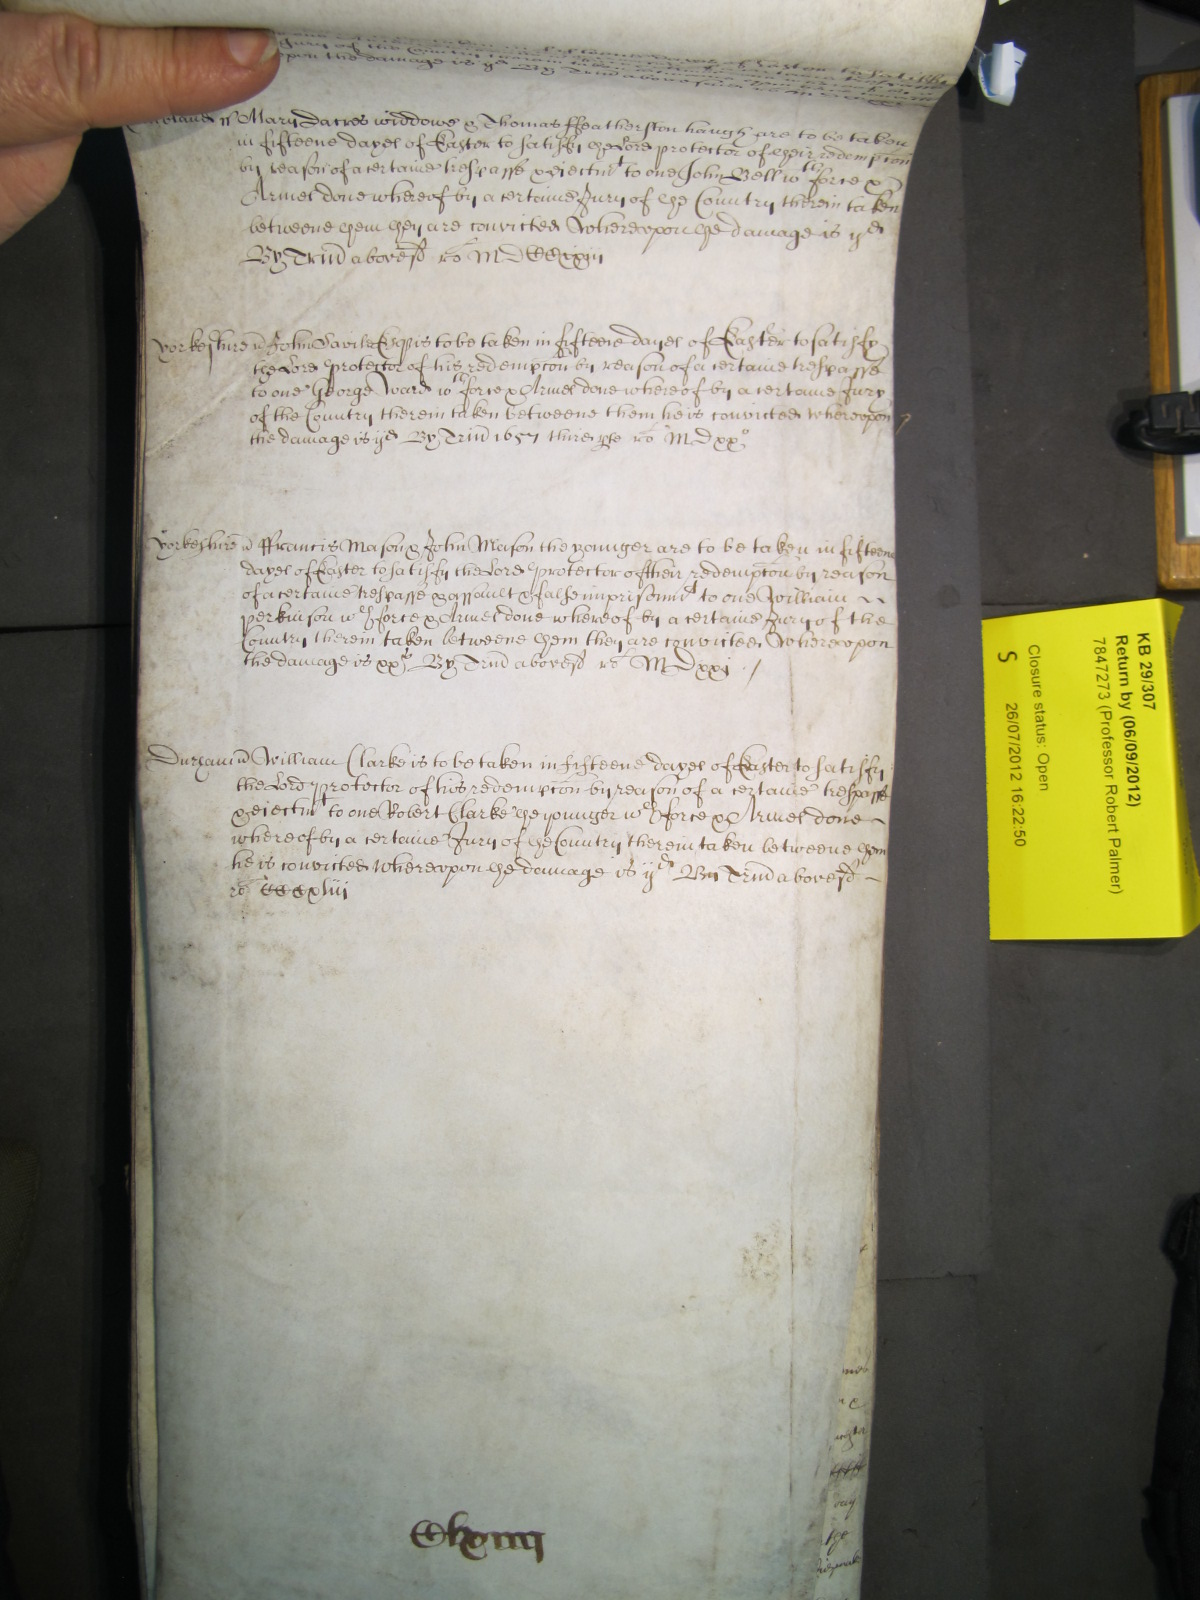 upon the damage is ijd By Trin
Mary Dacres widdowe & Thomas ffeatherston haugh are to be taken
in fifteene dayes of Easter to satisfy the Lord protector of their redempcon
by reason of a certaine trespasse & ejectmt to one John Bell wth force &
Armes done whereof by a certaine Jury of the Country therein taken
betweene them they are convicted Whereupon the damage is ijd
By Trin abovesd ro
Yorkeshire John Savile Esqr is to be taken in fifteene dayes of Easter to satisfy
the Lord protector of his redempcon by reason of a certaine trespasse
to one George Ward wth force & Armes done whereof by a certaine Jury
of the Country therein taken betweene them he is convicted Whereupon
the damage is ijd By Trin 1657 third pte ro MDxxo
Yorkeshire ffrancis Mason & John Mason the younger are to be taken in fifteene
dayes of Easter to satisfy the Lord protector of their redempcon by reason
of a certaine trespasse & assault & false imprisonmt to one William
perkinson wth force & Armes done whereof by a certaine Jury of the
Country therein taken betweene them they are convicted Whereupon
the damage is xxs By Trin abovesd ro MDxxj
Durham William Clarke is to be taken in fifteene dayes of Easter to satisfy
the Lord protector of his redempcon by reason of a certaine trespasse
& ejectmt to one Robert Clarke the younger wth force & Armes done
whereof by a certaine Jury of the Country therein taken betweene them
he is convicted Whereupon the damage is ijd By Trin abovesd
ro CCCxliij
KB 29/307
Return by (06/09/2012)
7847273 (Professor Robert Palmer)
Closure status: Open
S 26/07/2012 16:22:50